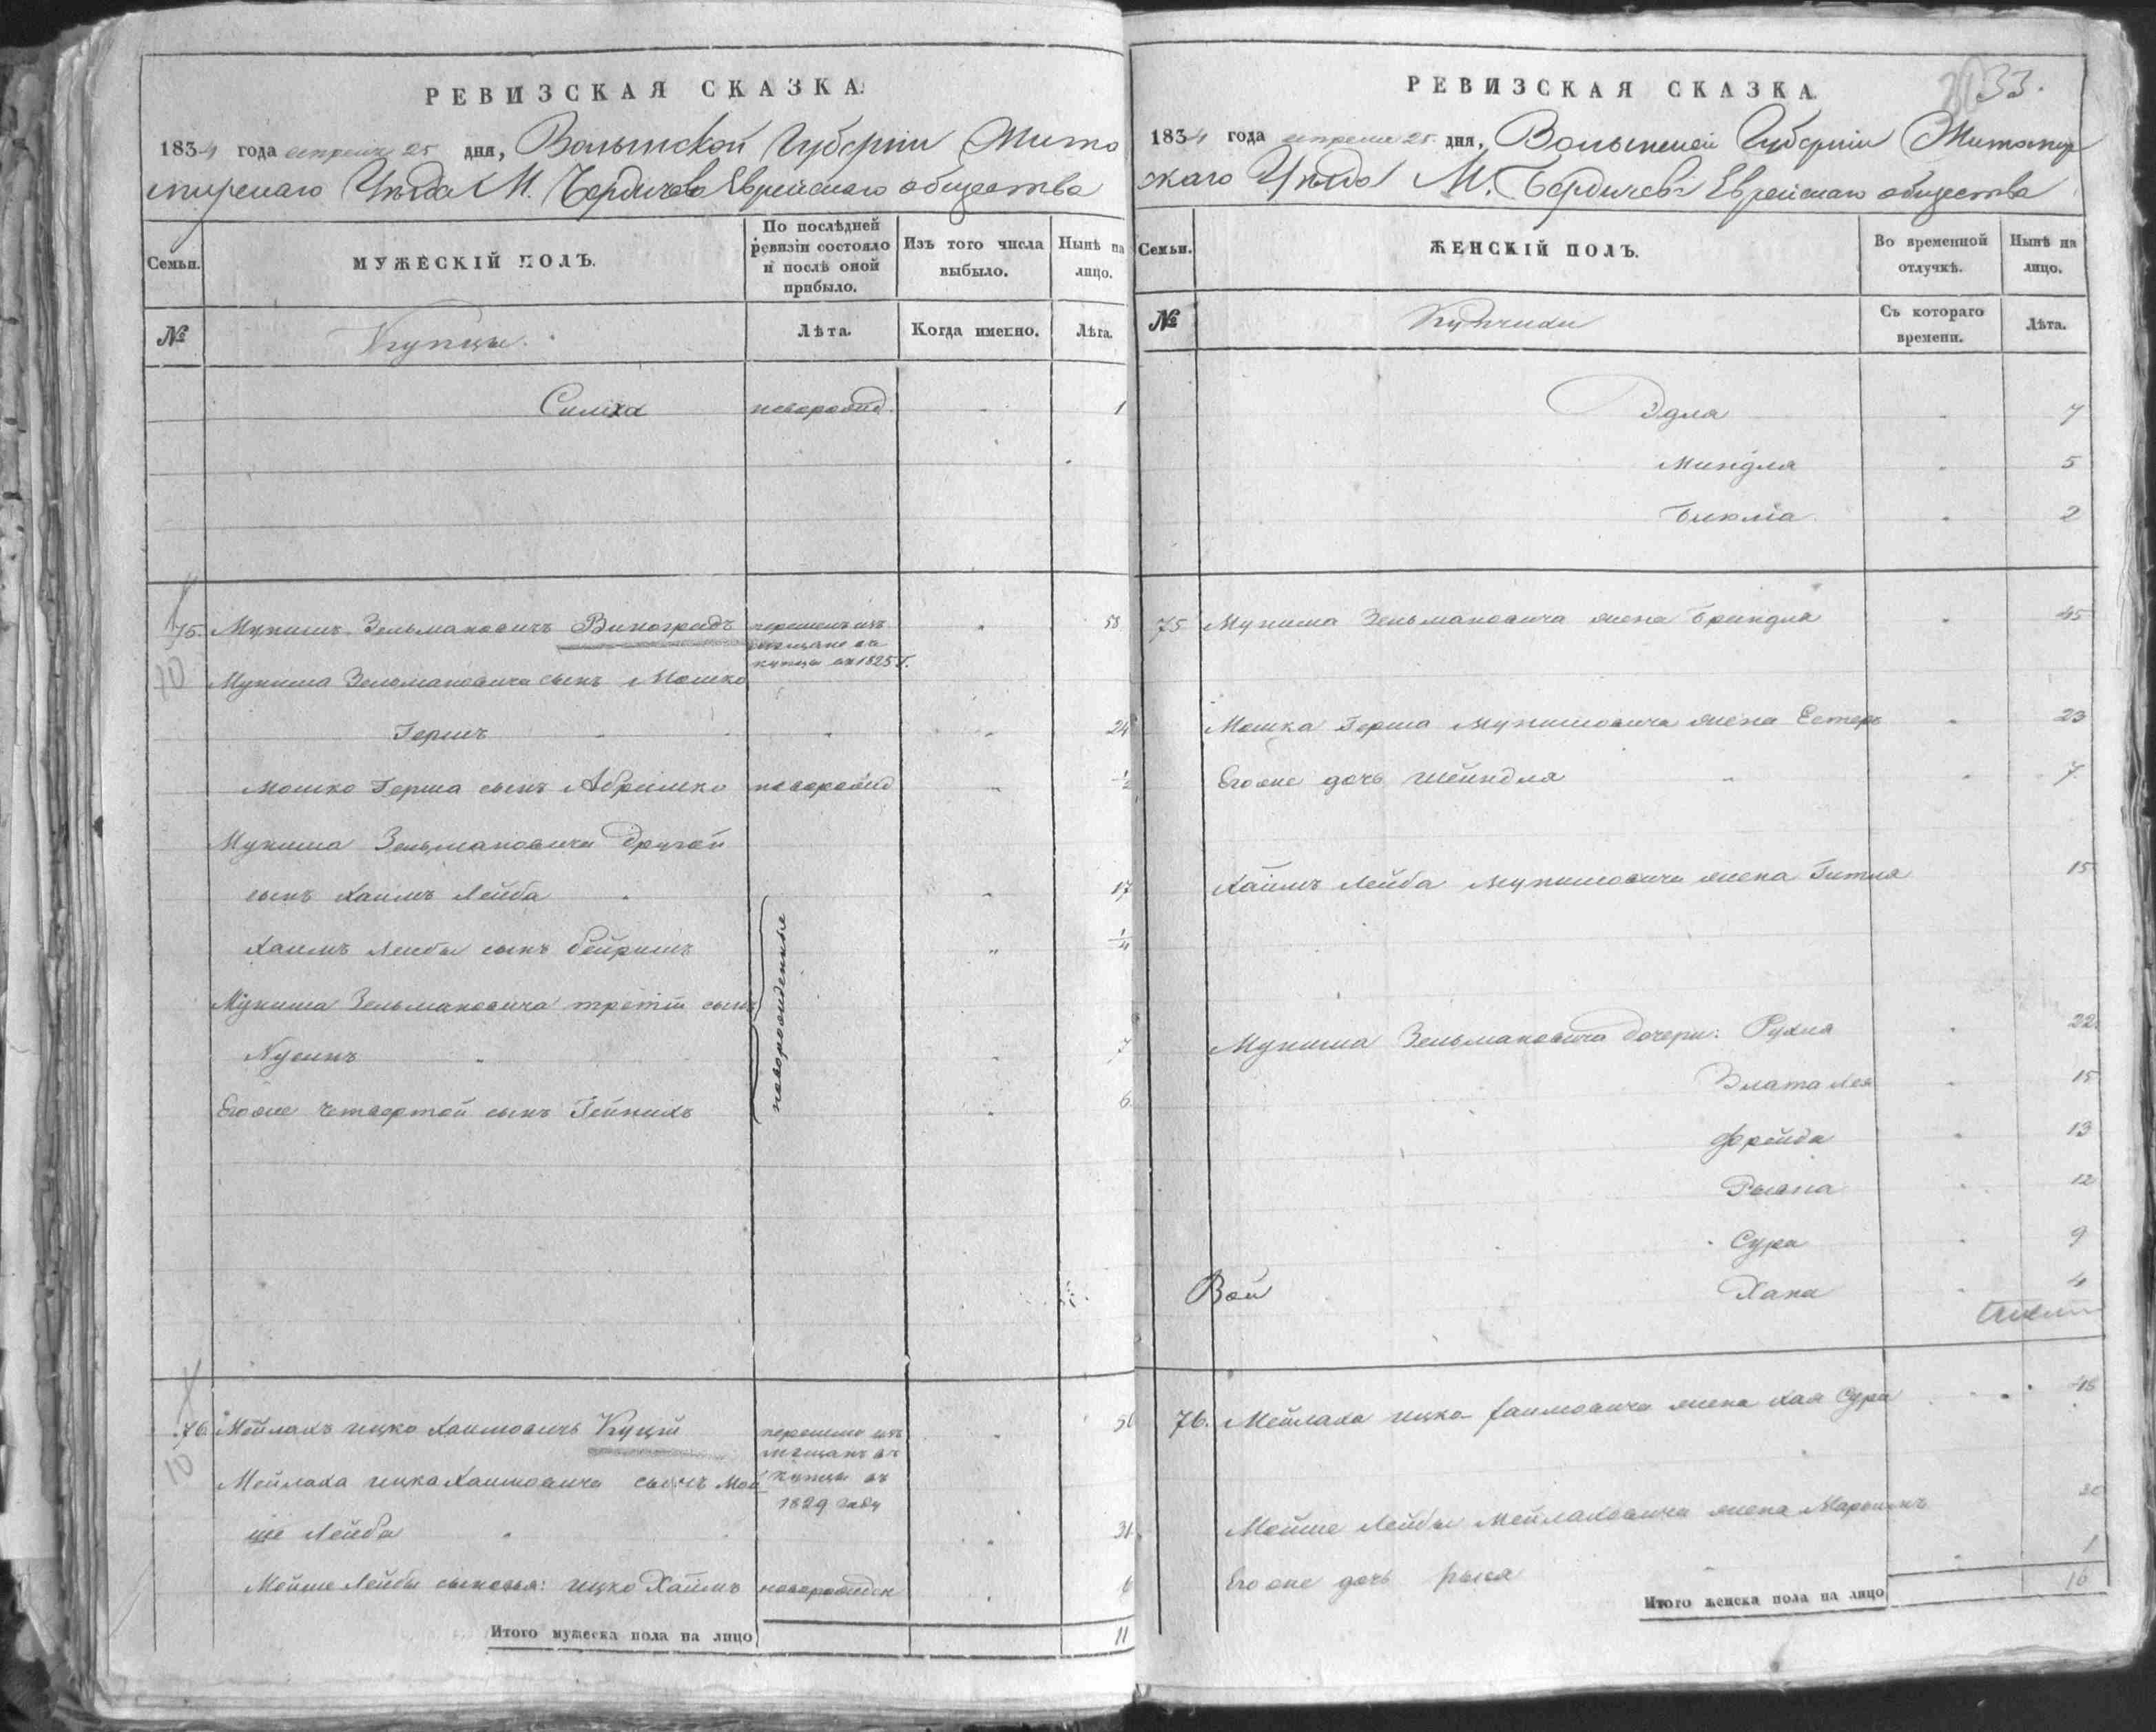 РЕВИЗСКАЯ СКАЗКА.
1834 года апреля 25 дня, Волынской Губерніи Жито
мирскаго Уѣзда М. Бердичева Еврейскаго общества
Семьи.
МУЖЕСКІЙ ПОЛЪ.
По послѣдней ревизіи состояло и послѣ оной прибыло.
Изъ того числа выбыло.
Нынѣ на лицо.
№
Купцы.
Лѣта.
Когда именно.
Лѣта.
Симха новорожд. 1
75. Мунишъ Зельмановичъ Виноградъ перешелъ изъ мещанъ въ купцы въ 1825 г. 58
10
Муниша Зельмановича сынъ Мошко
Гершъ 24
Мошко Герша сынъ Абрамко новорожд 1/2
Муниша Зельмановича другой
сынъ Хаимъ Лейба 17
Хаимъ Лейбы сынъ Бейришъ 1/4
Муниша Зельмановича третій сынъ
Нусинъ 7
Егоже четвертой сынъ Гейнихъ 6
новорожденные
76. Мейлахъ Ицко Хаимовичъ Куцій перешелъ изъ мещанъ въ купцы въ 1829 году
10
Мейлаха Ицка Хаимовича сынъ Мой
ше Лейба 31
Мойше Лейбы сыновья: Ицко Хаимъ новорожден 6
Итого мужеска пола на лицо 11
РЕВИЗСКАЯ СКАЗКА.
33.
1834 года апреля 25 дня, Волынской Губерніи Житомир
скаго Уѣзда М. Бердичева Еврейскаго общества
Семьи.
ЖЕНСКІЙ ПОЛЪ.
Во временной отлучкѣ.
Нынѣ на лицо.
№
Купчихи
Съ котораго времени.
Лѣта.
Эдля 7
Миндля 5
Блюма 2
75 Муниша Зельмановича жена Бриндля 45
Мошка Герша Мунишовича жена Естеръ 23
Егоже дочь Шейндля 7
Хаимъ Лейба Мунишовича жена Гитля 15
Муниша Зельмановича дочери: Рухля 22
Злата Лея 15
Фрейда 13
12
Сура 9
Вой
Хана 4
76. Мейлаха Ицко Хаимовича жена Хая Сура 48
Мойше Лейбы Мейлаховича жена 30
Егоже дочь 1
Итого женска пола на лицо 16